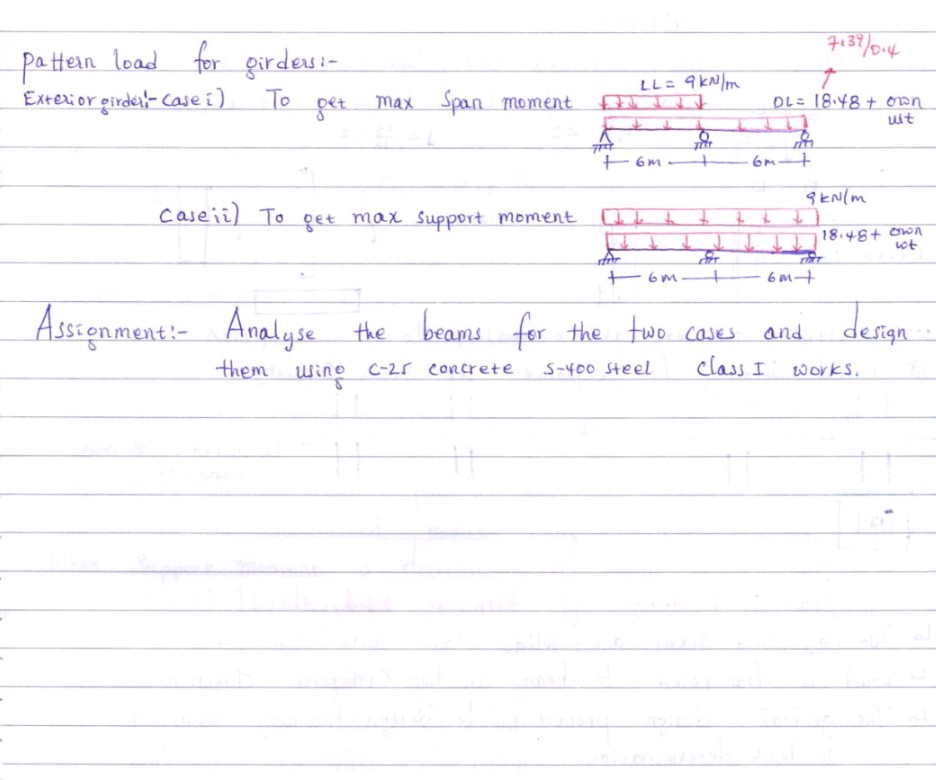 7.39/0.4
Pattern load for girders:-
LL = 9 kN/m
Exterior girder:- Case i) To get max Span moment
DL = 18.48 + own wt
6m 6m
9 kN/m
Case ii) To get max support moment
18.48 + own wt
6m 6m
Assignment:- Analyse the beams for the two cases and design
them using C-25 concrete S-400 steel Class I works.